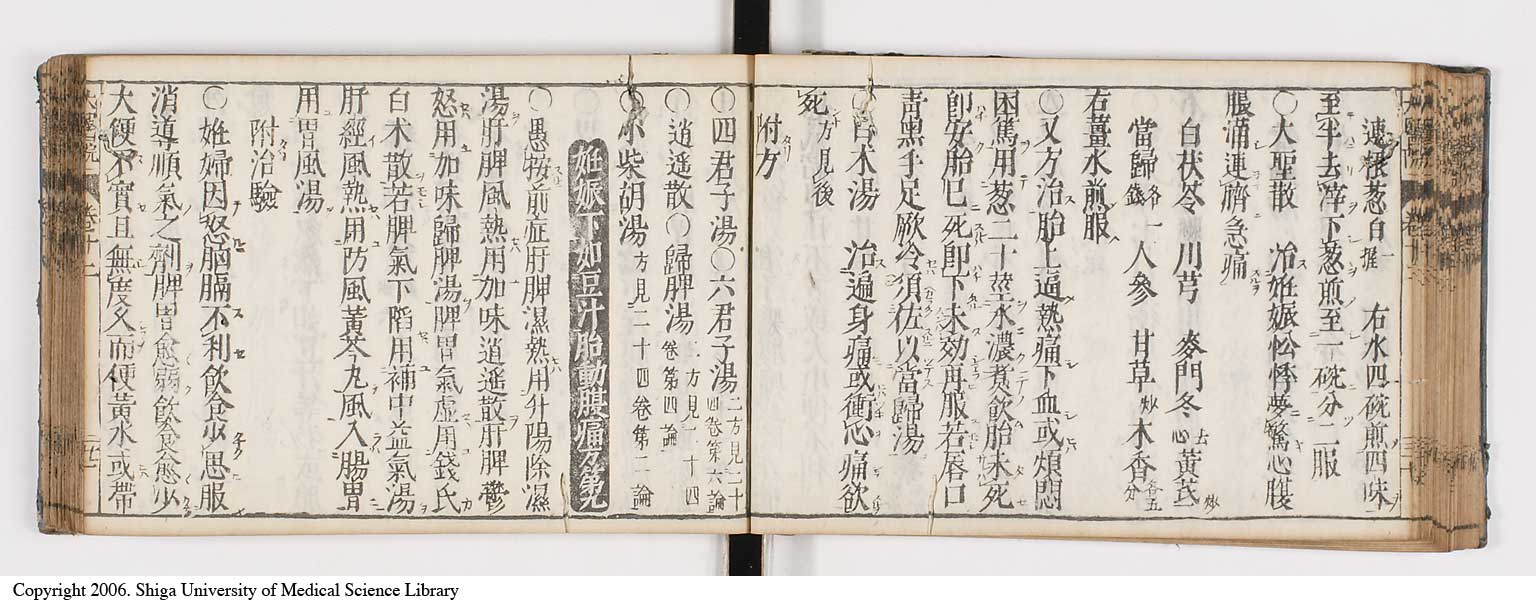 連根葱白一握 右水四碗煎四味
至半去滓下葱煎至一碗分二服
○大聖散 治妊娠忪悸夢驚心腹
脹滿連臍急痛
白茯苓 川芎 麥門冬去心 黃芪炒
當歸各一錢 人參 甘草炒 木香各五分
右薑水煎服
○又方治胎上逼熱痛下血或煩悶
困篤用葱二十莖水濃煮飲胎未死
即安胎已死即下未効再服若唇口
靑黑手足厥冷須佐以當歸湯
○白朮湯 治遍身痛或衝心痛欲
死方見後
附方
○四君子湯○六君子湯二方見二十四卷第六論
○逍遙散○歸脾湯二方見二十四卷第四論
○小柴胡湯方見二十四卷第二論
妊娠下如豆汁胎動腹痛方第九
○愚按前症肝脾濕熱用升陽除濕
湯肝脾風熱用加味逍遙散肝脾鬱
怒用加味歸脾湯脾胃氣虛用錢氏
白朮散若脾氣下陷用補中益氣湯
肝經風熱用防風黃芩丸風入腸胃
用胃風湯
附治驗
○一妊婦因怒胸膈不利飲食少思服
消導順氣之劑脾胃愈弱飲食愈少
大便不實且無度久而便黃水或帶
Copyright 2006. Shiga University of Medical Science Library